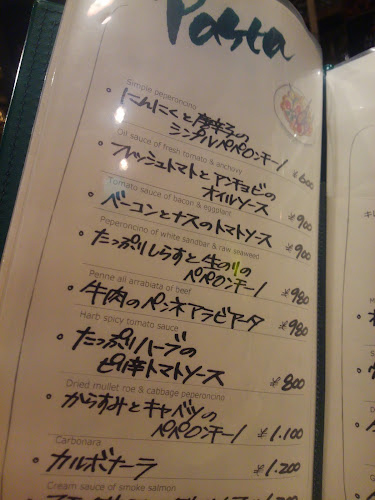 Pasta
Simple peperoncino
・にんにくと唐辛子の
シンプルペペロンチーノ ¥600
Oil sauce of fresh tomato & anchovy
・フレッシュトマトとアンチョビの
オイルソース ¥900
Tomato sauce of bacon & eggplant
・ベーコンとナスのトマトソース ¥900
Peperoncino of white sandbar & raw seaweed
・たっぷりしらすと生のりの
ペペロンチーノ ¥980
Penne all arrabiata of beef
・牛肉のペンネアラビアータ ¥980
Harb spicy tomato sauce
・たっぷりハーブの
ピリ辛トマトソース ¥800
Dried mullet roe & cabbage peperoncino
・からすみとキャベツの
ペペロンチーノ ¥1.100
Carbonara
・カルボナーラ ¥1.200
Cream sauce of smoke salmon